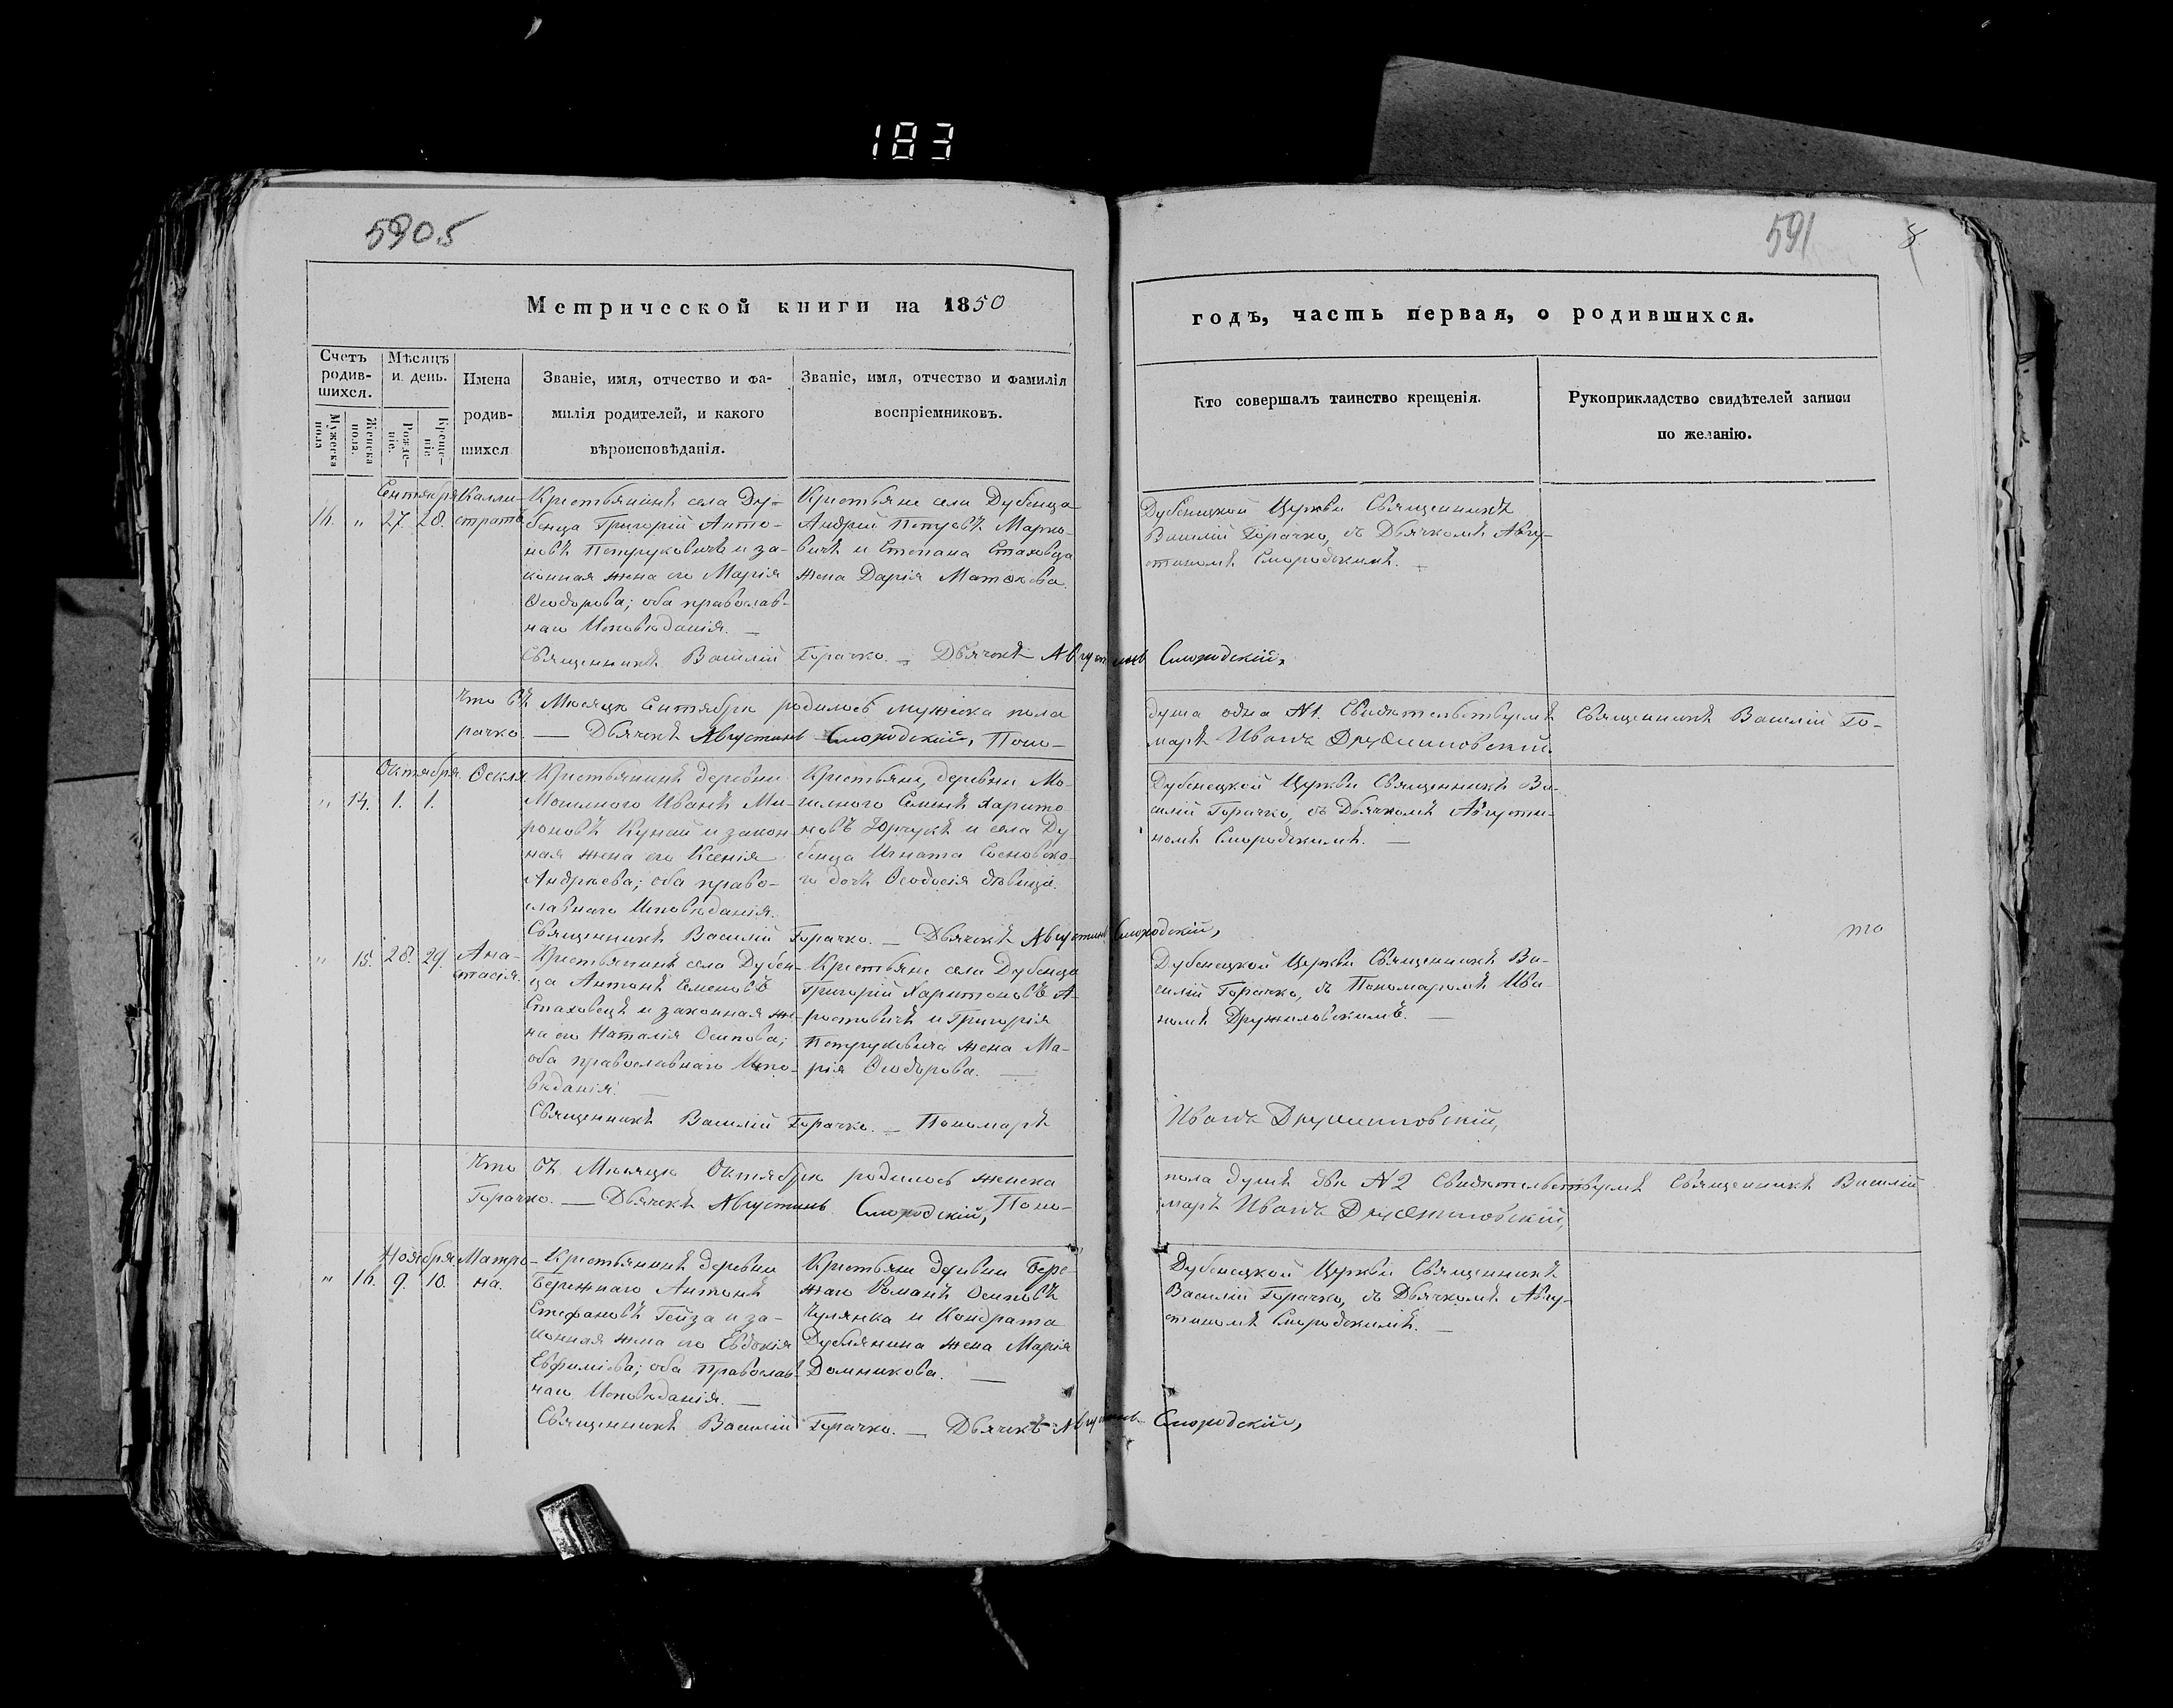 183
590об
591
Метрической книги на 1850
годъ, часть первая, о родившихся.
Счетъ родившихся.
Мужеска пола
Женска пола.
Мѣсяцъ и день.
Рожденіе.
Крещеніе
Имена
родив-
шихся
Званіе, имя, отчество и фа-
милія родителей, и какого
вѣроисповѣданія.
Званіе, имя, отчество и фамилія
воспріемниковъ.
Кто совершалъ таинство крещенія.
Рукоприкладство свидѣтелей записи
по желанію.
Сентября
16. " 27. 28.
Калли-
стратъ
Крестьянинъ села Ду-
бенца Григорій Анто-
новъ Петруковичъ и за-
конная жена его Марія
Ѳеодорова; оба православ-
наго Исповѣданія. —
Крестьяне села Дубенца
Андрей Петровъ Марко-
вичъ и Степана Стаховца
жена Дарія Матѳѣева.
Дубенецкой Церкви Священникъ
Василій Горачко, съ Дьячкомъ Авгу-
стиномъ Смородскимъ. —
Священникъ Василій Горачко. — Дьячекъ Августинъ Смородскій,
Что въ Мѣсяцѣ Сентябрѣ родилось мужеска пола
душа одна №1. Свидѣтельствуемъ Священникъ Василій Го-
рачко. — Дьячекъ Августинъ Смородскій, Поно-
марь Иванъ Дружиловскій.
Октября
" 14. 1. 1.
Ѳекла
Крестьянинъ деревни
Мошлного Иванъ Ми-
роновъ Кунай и закон-
ная жена его Ксенія
Андреева; оба право-
славнаго Исповѣданія.
Крестьяне, деревни Мо-
шлного Семенъ Харито-
новъ Юрчукъ и села Ду
бенца Игната Сосновско-
го дочь Ѳеодосія дѣвица.
Дубенецкой Церкви Священникъ Ва-
силій Горачко, съ Дьячкомъ Августи-
номъ Смородскимъ. —
Священникъ Василій Горачко. — Дьячекъ Августинъ Смородскій,
то
" 15. 28. 29.
Ана-
стасія.
Крестьянинъ села Дубен-
ца Антонъ Семеновъ
Стаховецъ и законная же-
на его Наталія Осипова;
оба православнаго Испо-
вѣданія. —
Крестьяне села Дубенца
Григорій Харитоновъ А-
ростовичъ и Григорія
Петруковича жена Ма-
рія Ѳеодорова. —
Дубенецкой Церкви Священникъ Ва-
силій Горачко, съ Пономаремъ Ива-
номъ Дружиловскимъ. —
Священникъ Василій Горачко. — Пономарь
Иванъ Дружиловскій,
Что въ Мѣсяцѣ Октябрѣ родилось женска
пола душъ двѣ №2 Свидѣтельствуемъ Священникъ Василій
Горачко. — Дьячекъ Августинъ Смородскій, Поно-
марь Иванъ Дружиловскій,
Ноября
" 16. 9. 10.
Матро-
на.
Крестьянинъ деревни
Бережнаго Антонъ
Стефановъ Гейза и за-
конная жена его Евдокія
Евфиміева; оба Православ-
наго Исповѣданія. —
Крестьяне деревни Бере-
жнаго Романъ Осиповъ
Чулянка и Кондрата
Дублянина жена Марія
Домникова. —
Дубенецкой Церкви Священникъ
Василій Горачко, съ Дьячкомъ Авгу-
стиномъ Смородскимъ. —
Священникъ Василій Горачко. — Дьячекъ Августинъ Смородскій,